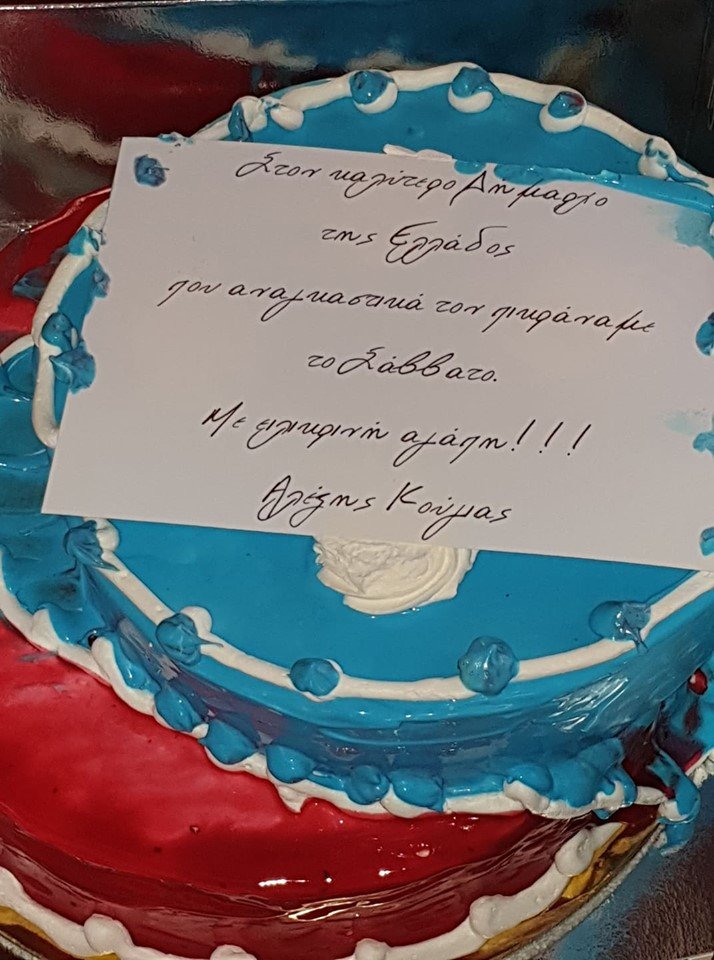 Στον καλύτερο Δήμαρχο
της Ελλάδος
που αναγκαστικά τον πικράναμε
το Σάββατο.
Με ειλικρινή αγάπη!!!
Αλέξης Κούγιας